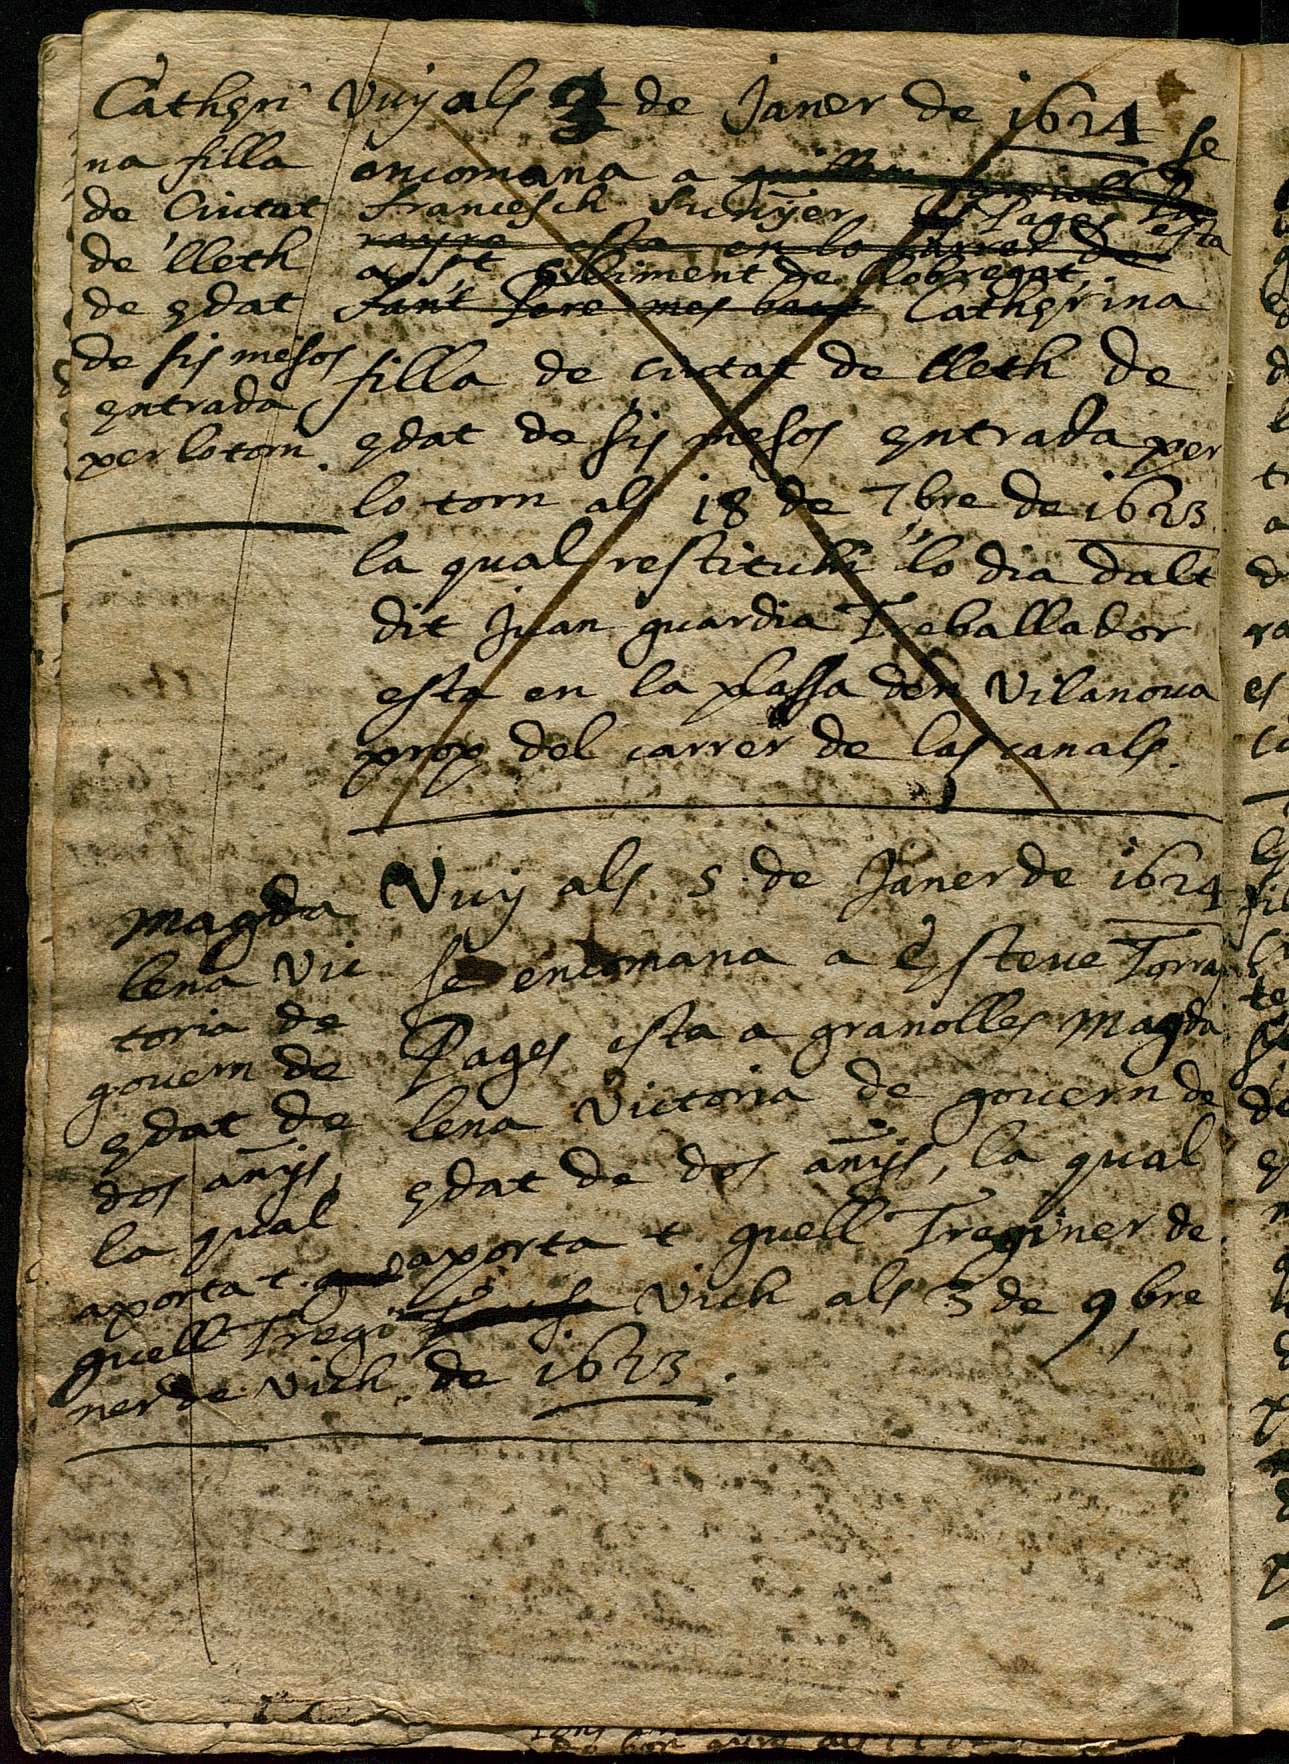 Catheri
na filla
de Ciutat
de lleth
de edat
de sis mesos
entrada
per lo torn.
Vuy als 3 de Janer de 1624 se
encomana a
francesch sunyer Pages esta
rayre esta en lo carrer de
a St Climent de llobregat.
sant Pere mes baix Catherina
filla de ciutat de lleth de
edat de sis mesos entrada per
lo torn als 18 de 7bre de 1623
la qual restituhi lo dia dalt
dit Juan guardia Treballador
esta en la plassa den Vilanova
prop del carrer de las canals.
Magda
lena Vic
toria de
govern de
edat de
dos anys,
la qual
aporta t.
quell Tregi
ner de Vich.
Vuy als 5 de Janer de 1624
se encomana a esteve Torras
Pages esta a granolles Magda
lena Victoria de govern de
edat de dos anys, la qual
aporta t quell Treginer de
Vich als 3 de 9bre
de 1623.